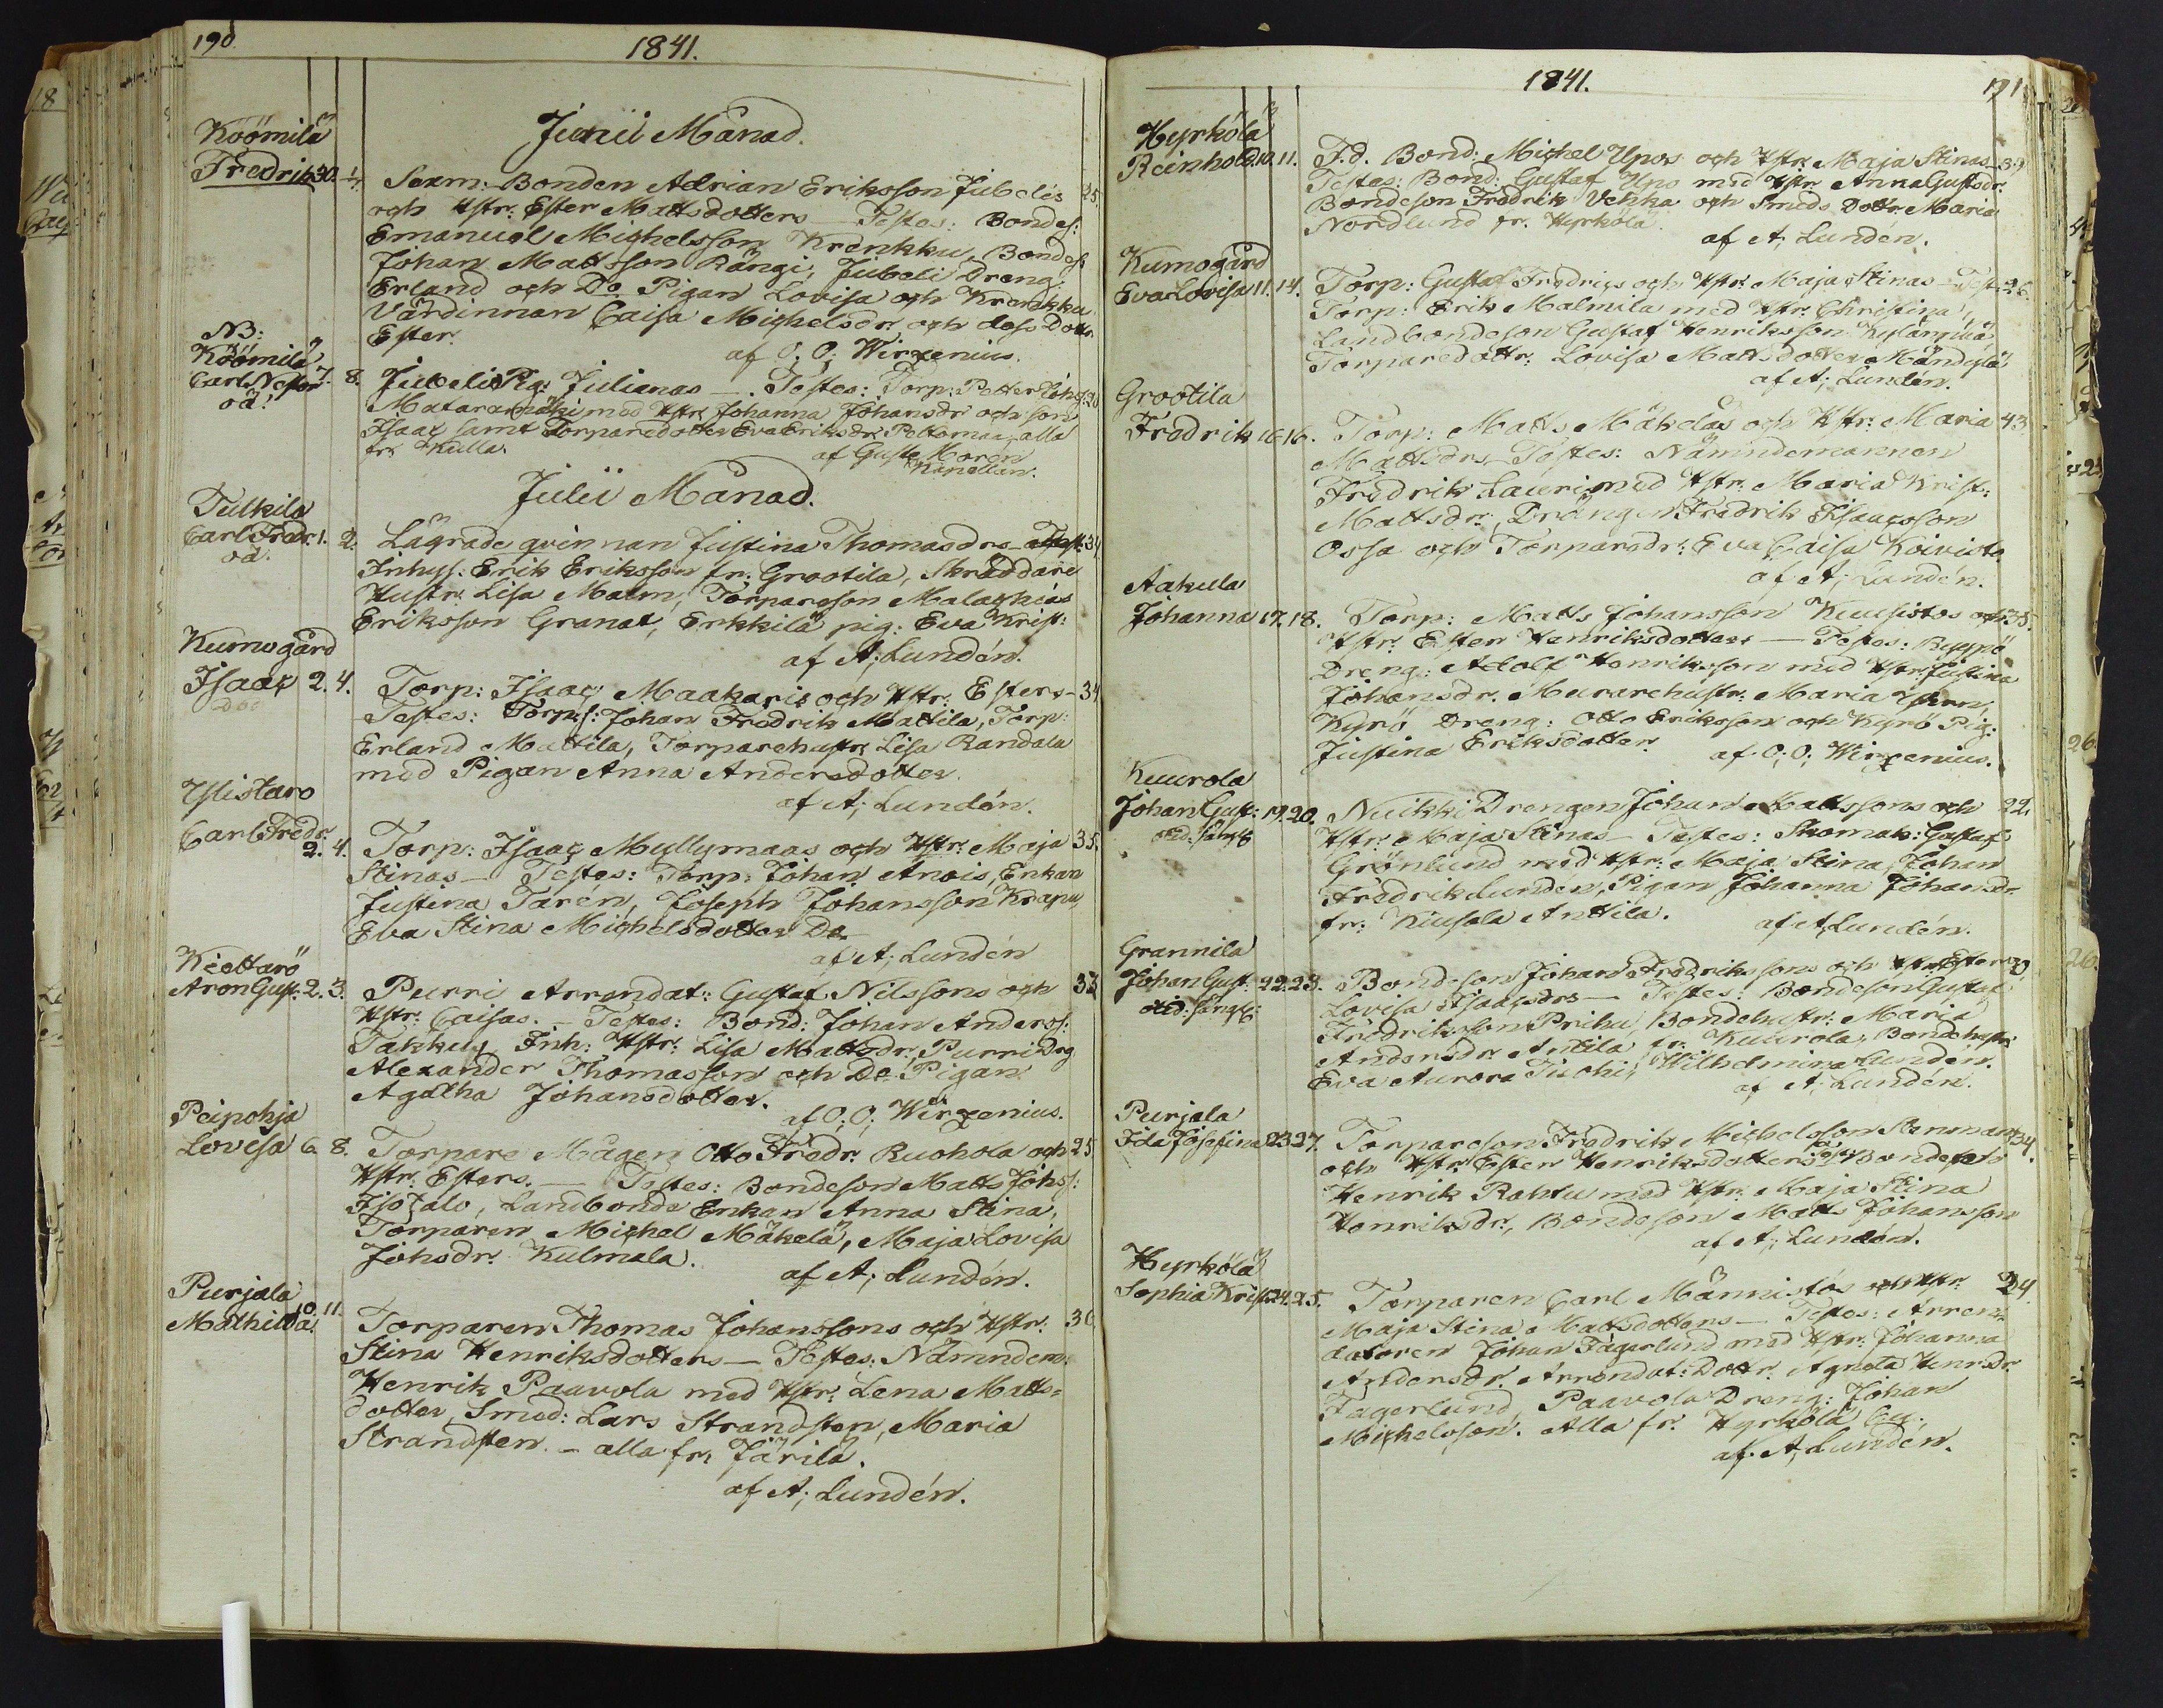 190
1841.
Junii Månad.
Köömilä
Fredrik 30. 1/7. Sexm: Bonden Adrian Eriksson Jubelis 25.
och Hstr: Ester Mattsdotters — Testes: Bondes:
Emanuel Michelsson Krenkku, Bondes:
Johan Mattsson Rångi, Jubeli Dreng:
Erland och Do Pigan Lovisa och Krenkku
Värdinnan Caisa Michelsdr och dess Dottr
Ester.
af O; O; Wirzenius.
NB:
Köömilä
Carl Nestor 7. 8. Jubeli Pig: Julianas — . Testes: Torp: Petter Johss: 20
oä!
Mataramäki med Hstr Johanna Johansdr och son
Isaac samt Torparedotter Eva Eriksdr Peltomaa, alla
fr: Kulla.
af Gust: Moren
Kapellan.
Julii Månad.
Tulkila
Carl Fredr: 1. 2. Lägrade qvinnan Justina Thomasdrs — Test: 34
oä.
Inhys: Erik Eriksson fr: Grootila, Skräddare
Hustr: Lisa Malm, Torpareson Malackias
Eriksson Granat, Erkkilä pig: Eva Krist:
af A; Lundén.
Kumogård
Isaac 2. 4. Torp: Isaac Maakaris och Hstr: Esters — 34
Testes: Torp:s: Johan Fredrik Mattila, Torp:
Erland Mattila, Torparehustr: Lisa Randala
med Pigan Anna Andersdotter.
af A; Lundén.
Ylistaro
Carl Fredr. 2. 4. Torp: Isaac Myllymaas och Hstr: Maja 35.
Stinas — Testes: Torp: Johan Anois, Enkan
Justina Tarén, Joseph Johansson Krapu,
Eva Stina Michelsdotter Do
af A; Lundén
Kiettarö
Aron Gust. 2. 3. Purri Arrendat: Gustaf Nilssons och 33
Hstr: Caisas. — Testes: Bond: Johan Anderss:
Takku, Inh: Hstr: Lisa Mattsdr, Purri Drg
Alexander Thomasson och Do Pigan
Agatha Johansdotter.
af O; O; Wirzenius.
Peipohja
Lovisa 6. 8. Torpare Mågen Otto Fredr: Ruohola och 25
Hstr: Esters. — Testes: Bondeson Matts Johss:
Isotalo, Landbonde Enkan Anna Stina,
Torparen Michel Mäkelä, Maja Lovisa
Johsdr: Kulmala.
af A; Lundén.
Purjala
Mathilda. 10. 11. Torparen Thomas Johanssons och Hstr: 36
Stina Henriksdotters — Testes: Nämndem:
Henrik Paavola med Hstr: Lena Matts=
dotter, Smed: Lars Strandsten, Maria
Strandsten. — alla fr: Järilä.
af A; Lundén.
1841.
191
Hyrkölä
Reinhold 10. 11. F.d. Bond: Michel Upos och Hstr: Maja Stinas 39
Testes: Bond: Gustaf Upo med Hstr Anna Gustsdr.
Bondeson Fredrik Vehka och Smeds Dottr: Maria
Nordlund fr: Hyrkölä.
af A; Lundén.
Kumogård
Eva Lovisa 11. 14. Torp: Gustaf Fredrics och Hstr: Maja Stinas — Test: 26.
Torp: Erik Malmila med Hstr: Christina,
Landbondeson Gustaf Henriksson
Torparedottr: Lovisa Mattsdotter Mändylä
af A; Lundén.
Grootila
Fredrik 16. 16. Torp: Matts Mäkelas och Hstr: Maria 43
Mattsdrs — Testes: Nämndemannen
Fredrik Lauri med Hstr: Maria Krist:
Mattsdr:, Drängen Fredrik Isaacsson
Ossa och Torparedr: Eva Caisa Koivisto.
af A; Lundén.
Aakula
Johanna 17. 18. Torp: Matts Johansson Kuusistos och 35.
Hstr: Ester Henriksdotters — Testes: Ryppö
Dreng: Adolf Henriksson med Hstr: Justina
Johansdr: Murarehustr: Maria
Kyrö Dreng: Otto Eriksson och Kyrö Pig:
Justina Eriksdotter.
af O; O; Wirzenius.
Kuurola
Johan Gust: 19. 20. Nuikki Drengen Johan Mattssons och 22.
Hstr: Maja Stinas — Testes: Skomak: Gustaf
Grönlund med Hstr: Maja Stina, Johan
Fredrik Lundén, Pigan Johanna Johansdr
fr: Kiusala Anttila.
af A; Lundén.
Grannila
Johan Gust: 22. 23. Bondeson Johan Fredrikssons och Hstr: Ester
Lovisa Isaacsdrs — Testes: Bondeson Gustaf
Fredriksson Prihu, Bondehustr: Maria
Andersdr Anttila fr: Kuurola, Bondehustr:
Eva Aurora Tuohi, Wilhelmina Lundén.
af A; Lundén.
Purjala
Ida Josefina 23. 27. Torpareson Fredrik Michelsson Stenman 34.
och Hstr: Ester Henriksdotters Test: Bondeson
Henrik Rahtu med Hstr: Maja Stina
Henriksdr:, Bondeson Matts Johansson
af A; Lundén.
Hyrkölä
Sophia Krist: 24. 25. Torparen Carl Männistös och Hstr: 24
Maja Stina Mattsdotters — Testes: Arren=
datoren Johan Fagerlund med Hstr: Johanna
Andersdr: Arrendat: Dottr: Agneta Henr:dr
Fagerlund, Paavola Dreng: Johan
Michelsson. Alla fr: Hyrkölä by.
af A; Lundén.